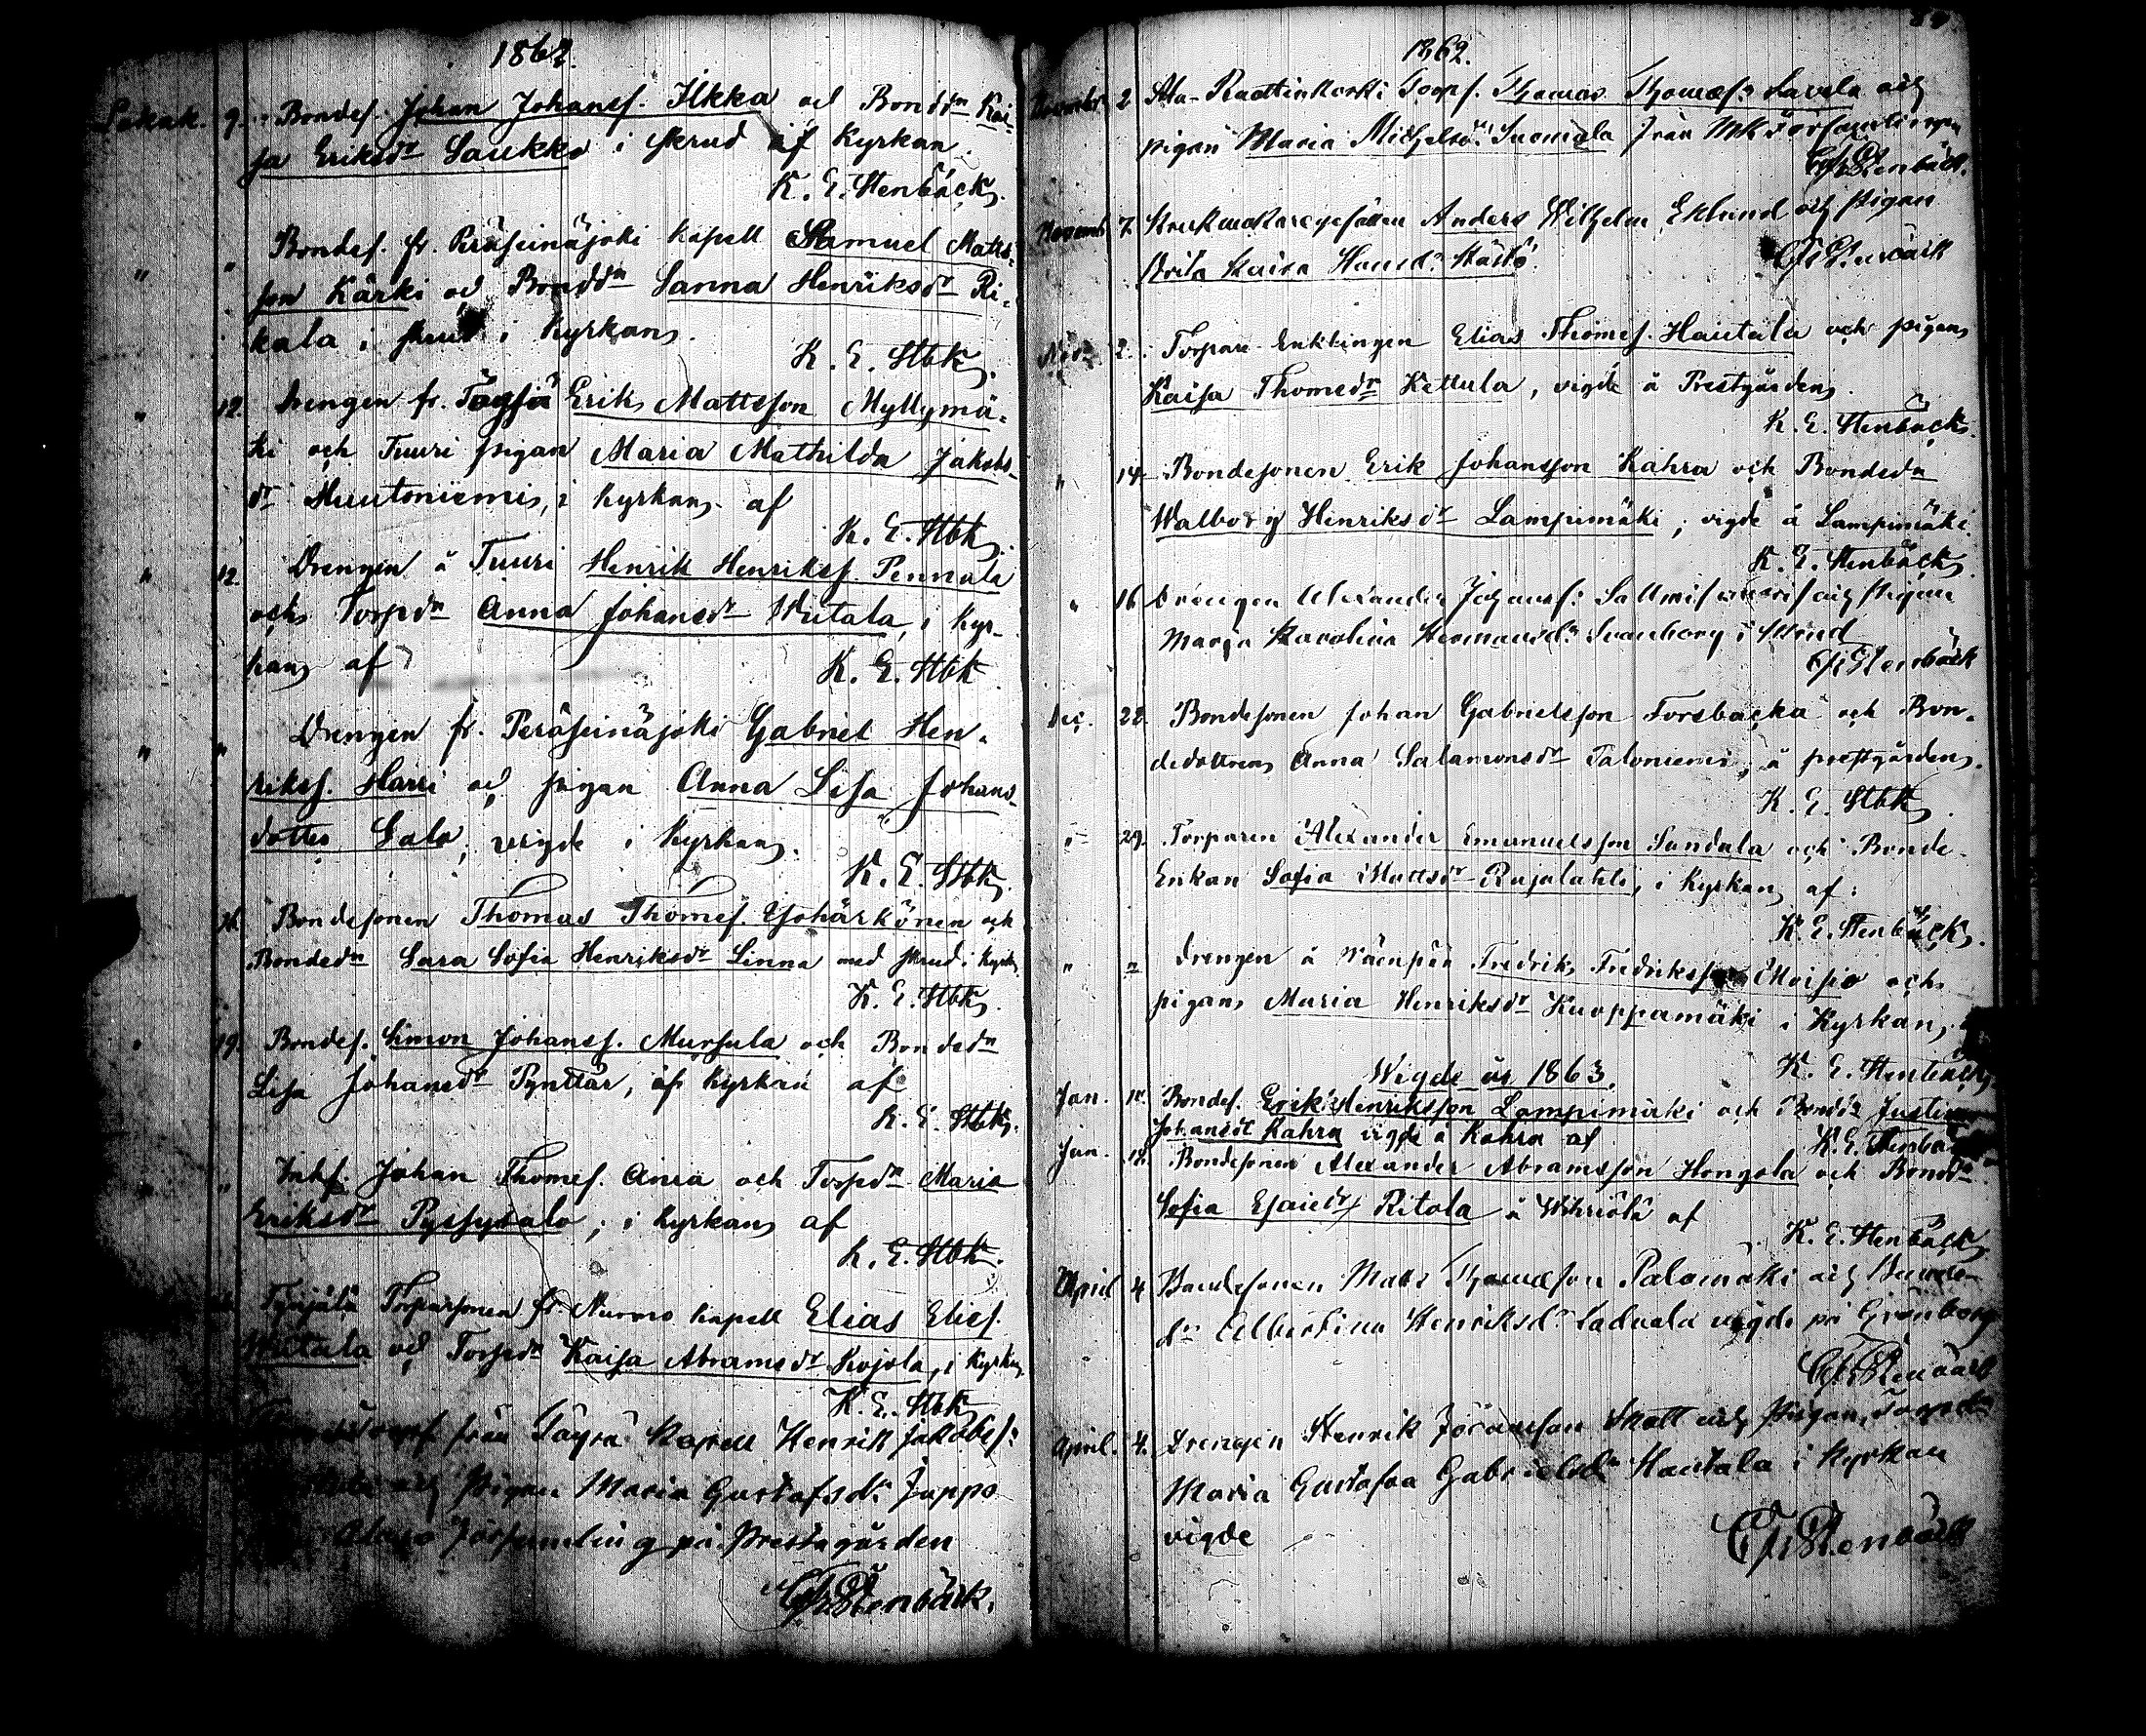 1862.
9. Bondes. Johan Johanss. Ilkka och Bondd:n Kai-
sa Eriksdr Saukko i skrud af Kyrkan.
K. E. Stenbäck.
" " Bondes. fr. Peräseinäjoki kapell Samuel Matts-
son Kärki och Bondd:n Sanna Henriksdr Ri-
kala i skrud i Kyrkan.
K. E. Stbk.
" 12. Drengen fr. Töysä Erik Mattsson Myllymä-
ki och Tuuri pigan Maria Mathilda Jakobs-
dr i Kyrkan af
K. E. Stbk.
" 12. Drengen å Tuuri Henrik Henrikss. Pennala
och Torpdn Anna Johansdr Witala, i Kyr-
kan af
K. E. Stbk
" " Drengen fr. Peräseinäjoki Gabriel Hen-
rikss. Harri och pigan Anna Lisa Johans-
dotter Salo, vigde i Kyrkan.
K. E. Stbk.
16. Bondesonen Thomas Thomes. Yohärkönen och
Bondedn Sara Sofia Henriksdr Linna med skrud i Kyrk.
K. E. Stbk.
" 19. Bondes. Simon Johanss. Mursula och Bondedn
Lisa Johansdr Pynttär, i Kyrkan af
K. E. Stbk.
" " Johan Thomes. och Torpdn Maria
Eriksdr Pyssysalo, i Kyrkan af
K. E. Stbk.
Torparsonen fr Nurmo kapell Elias Elies.
Witala och Torpdn Kaisa Abramsdr Kojola, i Kyrkan
K. E. Stbk
från Töysä Kapell Henrik Jakobss:
och Pigan Maria Gustafsdr Juppo
Alavo Församling på Prestagården
Stenbäck.
1862.
November 2 Ala-Raatinkoski Torps. Thomas Thomæs: Lavila och
pigan Maria Michelsdr Suomela från
Stenbäck.
Novemb 7. Krukmakaregesällen Anders Wilhelm Eklund och Pigan
Brita Kaisa Hansdr
Stenbäck
Nov 2. Torpare Enklingen Elias Thomes. Hautala och pigan
Kaisa Thomedr Kettula, vigde å Prestgården.
K. E. Stenbäck.
" 14 Bondesonen Erik Johansson Kahra och Bondedn
Walborg Henriksdr Lampimäki, vigde å Lampimäki
K. E. Stenbäck.
" 16 Drengen Alexander Johanss: och Pigan
Maria Karolina Hermansdr Svanborg i Skrud
Stenbäck
Dec. 28. Bondesonen Johan Gabrielsson Forsbacka och Bon-
dedottren Anna Salamonsdr Taloniemi, å prestgården.
K. E. Stbk.
29. Torparen Alexander Emanuelsson Sandala och Bonde-
Enkan Sofia Mattsdr Rajalahti, i Kyrkan af:
K. E. Stenbäck.
" " Drengen å Wäenpää Fredrik Fredriksson Moisio och
pigan Maria Henriksdr Knoppamäki i Kyrkan,
K. E. Stenbäck
Wigde år 1863.
Jan. Bondes. Erik Henriksson Lampimäki och Bondd:n Justina
Johansdr Kahra vigde å Kahra af
K. E. Stenbäck
Jan. 18. Bondesonen Alexander Abramsson Hongola och Bondd:n
Sofia Esaiedr Ritola å Wihriälä af
K. E. Stenbäck
April 4 Bondesonen Matts Thomæson Palomäki och Bonde-
dr Albertina Henriksdr Ladvala vigde på Grönborg
Stenbäck
April. 4. Drengen Henrik Johansson Skott och Pigan, Torpdn
Maria Gustafva Gabrielsdr Hautala i Kyrkan
vigde
Stenbäck